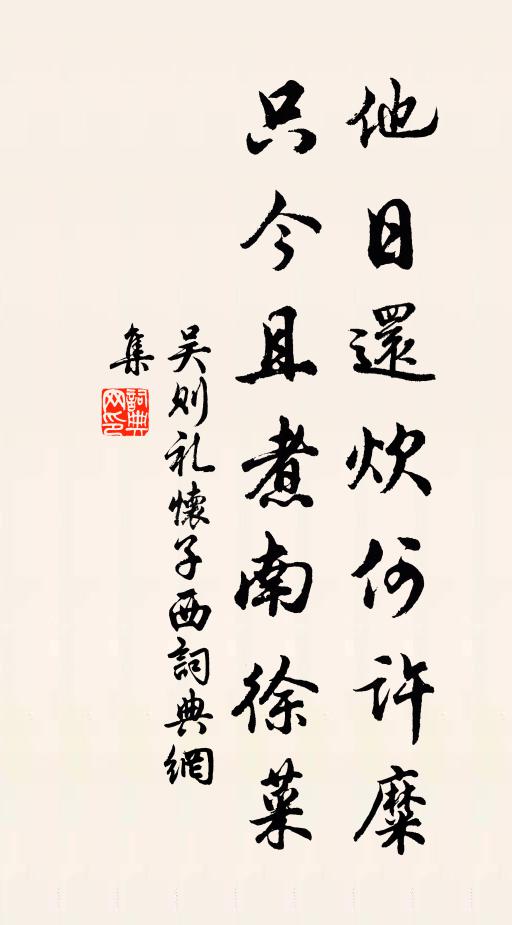 他日還炊何許糜
只今且煮南徐菜
吴则礼懷子西詞典網
集
詞典網印